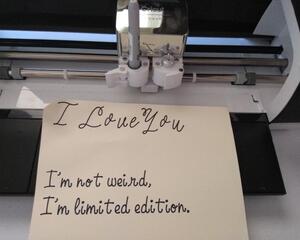 I Love You
I'm not weird,
I'm limited edition.